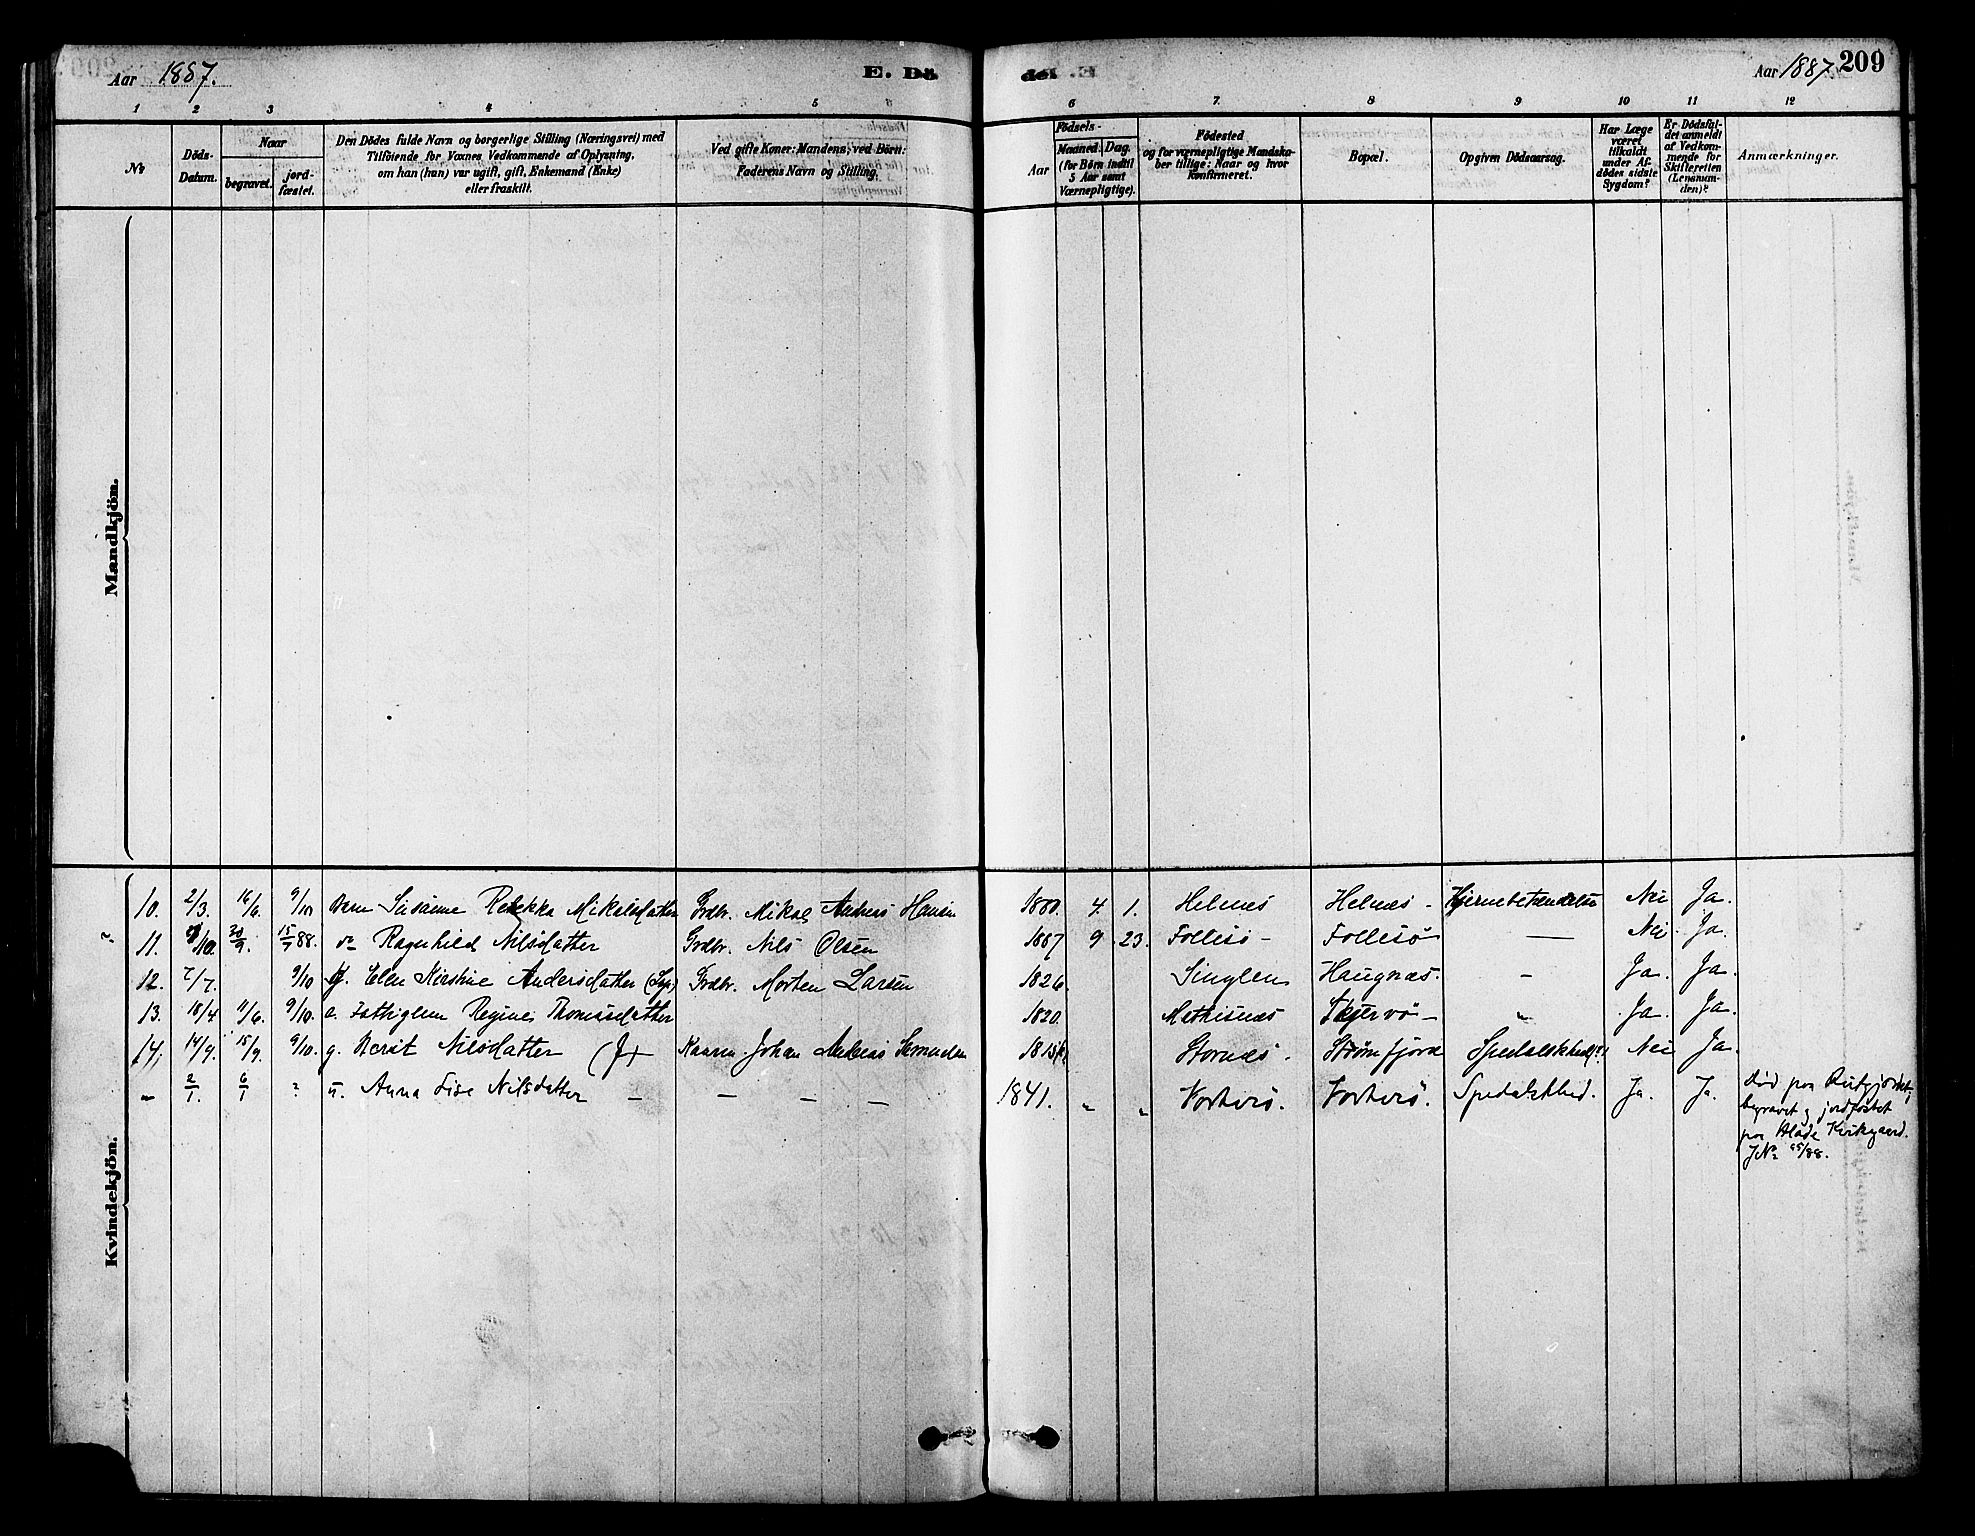 Aar 1887. E. Dö
de. E. Aar 1887. 209
1 2 3 4 5 6
6 7. 8 9 10 11 12
No Döds-Datum. Naar begravet. jord-fæstet.
Den Dödes fulde Navn og borgerlige Stilling (Næringsvei) med
Tilföiende for Voxnes Vedkommende af Oplysning,
om han (hun) var ugift, gift, Enkemand (Enke)
eller fraskilt.
Ved gifte Koner: Mandens, ved Börn:
Faderens Navn og Stilling.
Födsels-
Aar Maaned. Dag.
(for Börn indtil
5 Aar samt
Værnepligtige).
Födested
og for værnepligtige Mandska-
ber tillige: Naar og hvor
konfirmeret.
Bopæl.
Opgiven Dödsaarsag.
Har Læge
været
tilkaldt
under Af-
dödes sidste
Sygdom?
Er Dödsfal-
det anmeldt
af Vedkom-
mende for
Skifteretten
(Lensman-
den)?
Anmærkninger.
Mandkjön.
Kvindekjön.
10. 2/3. 16/6. 9/10 Barn Susanne Rebekka Mikalsdatter Grdbr. Mikal Andreas Hansen 1880. 4. 1. Helnæs Helnæs - Hjernebetændelse Nei Ja.
11. /10. 20/9. 15/7 88. do Ragnhild Nilsdatter Grdbr. Nils Olsen 1887 9 23. Follesö - Follesö — Nei Ja.
12. 7/7. 9/10 g. Ellen Kirstine Andersdatter Grdbr. Morten Larsen 1826 Singlen Haugnæs. - Ja. Ja.
13. 18/4 11/6. 9/10. e. Fattiglem Regine Thomasdatter 1820. Mathisnæs Skjervö - " Ja. Ja.
14. 14/9. 15/9. 9/10. g. Berit Nilsdatter Johan Andreas Samuelsen Stornæs. Strömfjord Spedalskhed(?) Nei Ja.
- 2/1. 6/1 ? u. Anna Lise Nilsdatter - - - - 1841. " " Vorterö. Vorterö. Spedalskhed. Ja. Ja. Död paa
begravet & jordfæstet
paa Kirkegaard.
JNo 95/88.